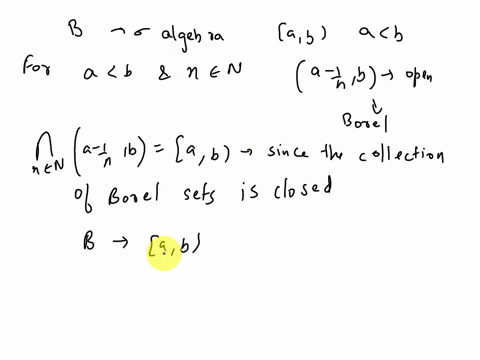 B → σ algebra [a,b) a<b
For a<b & n∈N (a-1/n,b) → open
↓
Borel
⋂n∈N (a-1/n,b) = [a,b) → since the collection
of Borel sets is closed
B → [a,b)